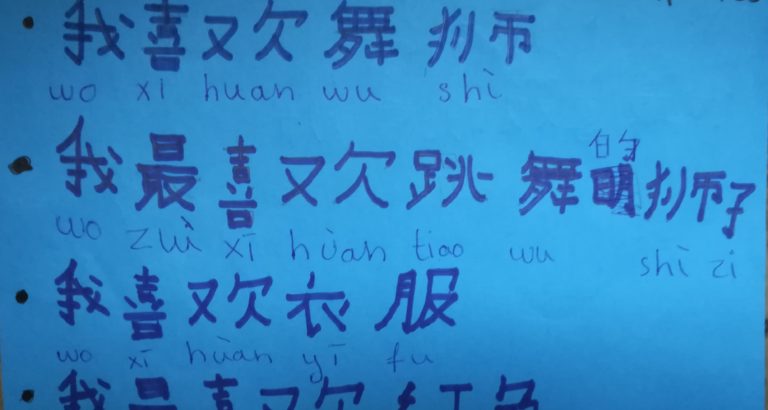 我喜欢舞狮
wo xi huan wu shì
我最喜欢跳舞的狮子
wo zuì xī hùan tiao wu shì zi
我喜欢衣服
wo xī hùan yī fu
我最喜欢红色